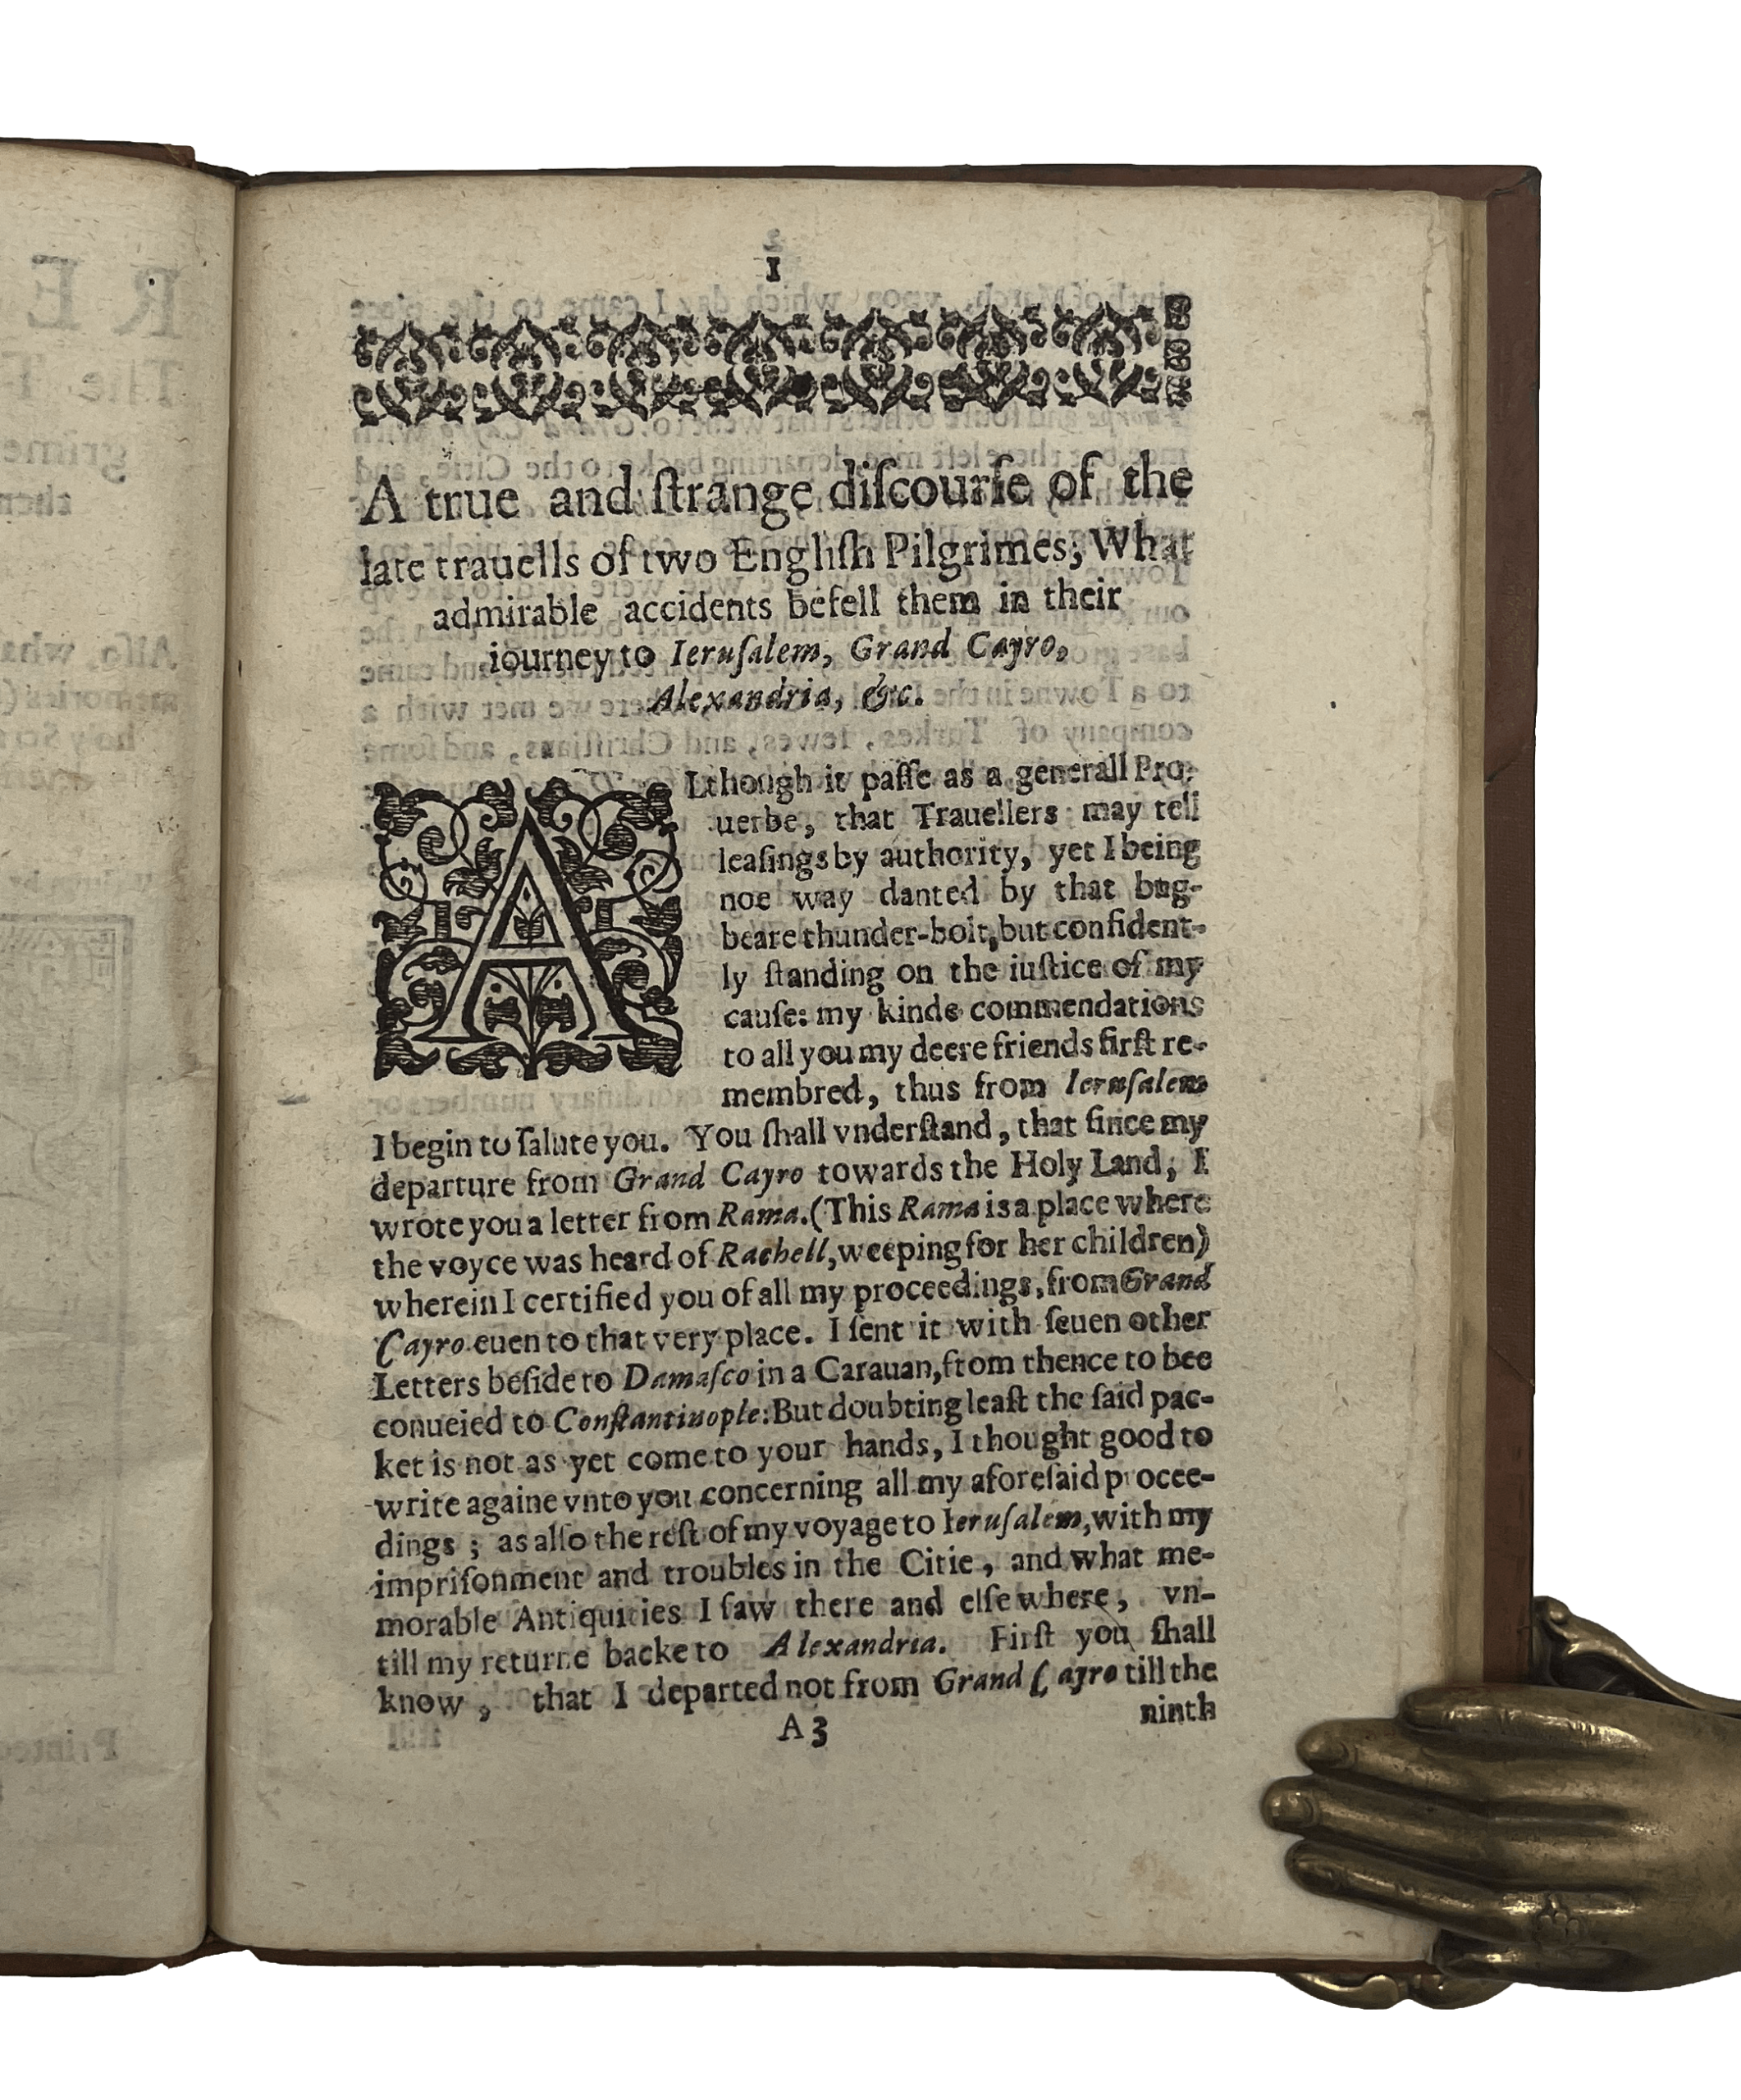 1
A true and ſtrange diſcourſe of the
late trauells of two Engliſh Pilgrimes; What
admirable accidents befell them in their
iourney to Ieruſalem, Grand Cayro,
Alexandria, &c.
ALthough it paſſe as a generall Pro-
uerbe, that Trauellers may tell
leaſings by authority, yet I being
noe way danted by that bug-
beare thunder-bolt, but confident-
ly ſtanding on the iuſtice of my
cauſe: my kinde commendations
to all you my deere friends firſt re-
membred, thus from Ieruſalem
I begin to ſalute you. You ſhall vnderſtand, that ſince my
departure from Grand Cayro towards the Holy Land, I
wrote you a letter from Rama. (This Rama is a place where
the voyce was heard of Rachell, weeping for her children)
wherein I certified you of all my proceedings, from Grand
Cayro euen to that very place. I ſent it with ſeuen other
Letters beſide to Damaſco in a Carauan, from thence to bee
conueied to Conſtantinople: But doubting leaſt the ſaid pac-
ket is not as yet come to your hands, I thought good to
write againe vnto you concerning all my aforeſaid procee-
dings; as alſo the reſt of my voyage to Ieruſalem, with my
impriſonment and troubles in the Citie, and what me-
morable Antiquities I ſaw there and elſewhere, vn-
till my returne backe to Alexandria. Firſt you ſhall
know, that I departed not from Grand Cayro till the
A3 ninth